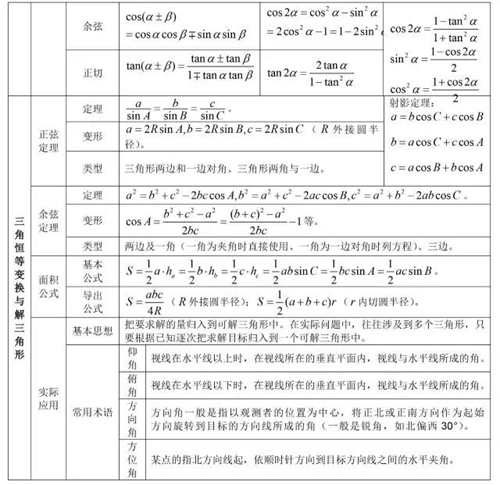 余弦
cos(α±β)
=cosαcosβ∓sinαsinβ
cos2α=cos²α−sin²α
=2cos²α−1=1−2sin²α
cos2α=(1−tan²α)/(1+tan²α)
sin²α=(1−cos2α)/2
cos²α=(1+cos2α)/2
正切
tan(α±β)=(tanα±tanβ)/(1∓tanαtanβ)
tan2α=2tanα/(1−tan²α)
三角恒等变换与解三角形
正弦定理
定理
a/sin A=b/sin B=c/sin C。
射影定理:
a=bcosC+ccosB
b=acosC+ccosA
c=acosB+bcosA
变形
a=2Rsin A,b=2Rsin B,c=2Rsin C(R外接圆半
径)。
类型
三角形两边和一边对角、三角形两角与一边。
余弦定理
定理
a²=b²+c²−2bccosA,b²=a²+c²−2accosB,c²=a²+b²−2abcosC。
变形
cosA=(b²+c²−a²)/2bc=((b+c)²−a²)/2bc−1等。
类型
两边及一角(一角为夹角时直接使用、一角为一边对角时列方程)、三边。
面积公式
基本公式
S=1/2a·hₐ=1/2b·h_b=1/2c·h_c=1/2absinC=1/2bcsinA=1/2acsinB。
导出公式
S=abc/4R(R外接圆半径);S=1/2(a+b+c)r(r内切圆半径)。
实际应用
基本思想
把要求解的量归入到可解三角形中。在实际问题中,往往涉及到多个三角形,只
要根据已知逐次把求解目标归入到一个可解三角形中。
常用术语
仰角
视线在水平线以上时,在视线所在的垂直平面内,视线与水平线所成的角。
俯角
视线在水平线以下时,在视线所在的垂直平面内,视线与水平线所成的角。
方向角
方向角一般是指以观测者的位置为中心,将正北或正南方向作为起始
方向旋转到目标的方向线所成的角(一般是锐角,如北偏西30°)。
方位角
某点的指北方向线起,依顺时针方向到目标方向线之间的水平夹角。